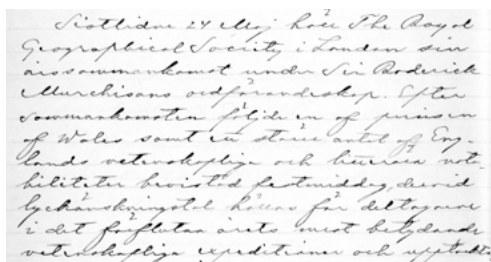 Sistlidne 24 Maj höll The Royal
Geographical Society i London sin
årssammankomst under Sir Roderick
Murchisons ordförandeskap. Efter
sammankomsten följde en af prinsen
of Wales samt ett större antal af Eng-
lands vetenskapliga och literära nota-
biliteter bevistad festmiddag, dervid
lyckönskningstal hållas för deltagarne
i det förflutna årets mest betydande
vetenskapliga expeditioner och upptäckts